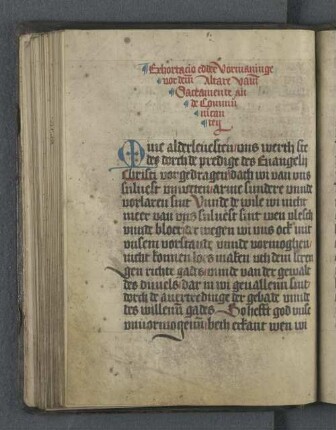 Exhortacio edder Vormaninge
vor dem Altare vam
Sacramente an
de Commu
nican
ten
Mine alderleuesten vns werth ste
des dorch de predige des Euangelij
Christi vorgedragen dath wi van vns
suluest in weten arme sundere vnnd
vorlaren sint Vnnd de wile wi nicht
meer van vns suluest sint wen vlesch
vnnd bloet wegen wi vns ock mit
vnsem vorstande vnnde vormoghen
nicht konnen loes maken vth dem stren
gen richte gades vnnde van der gewalt
des duuels dar in wi geuallenn sint
dorch de auertredinge der gebade vnnd
des willenn gades So hefft god vnse
vnuormogenn beth erkant wen wi